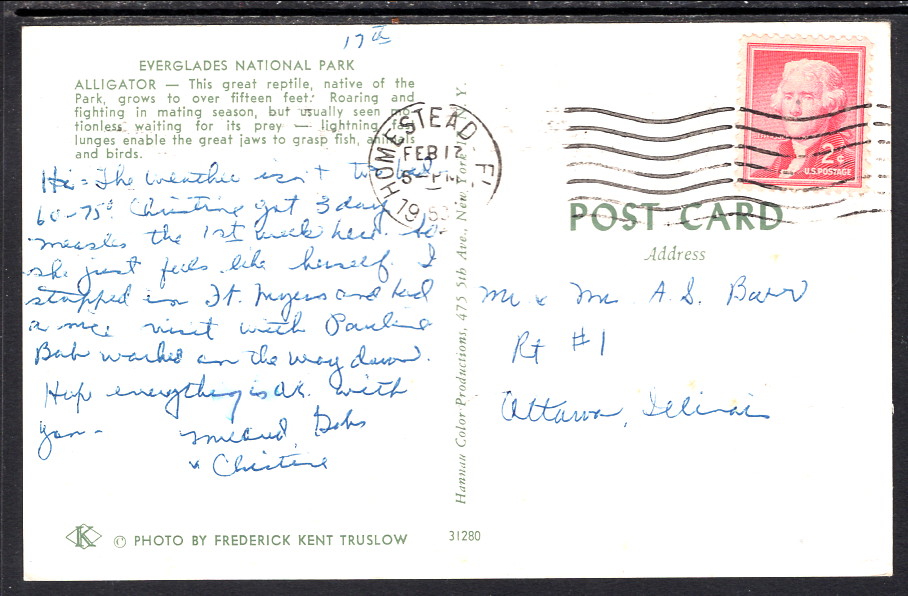 17th
EVERGLADES NATIONAL PARK
ALLIGATOR — This great reptile, native of the
Park, grows to over fifteen feet. Roaring and
fighting in mating season, but usually seen mo-
tionless waiting for its prey — lightning fast
lunges enable the great jaws to grasp fish, animals
and birds.
Hi - The weather isn't too bad
60-75° Christine got 3 day
measles the 1st week here. So
she just feels like herself. I
stopped in Ft. Myers and had
a nice visit with Pauline
Bob worked on the way down.
Hope everything is O.K. with
you -
Mildred, Bobs
+ Christine
© PHOTO BY FREDERICK KENT TRUSLOW
31280
Hannau Color Productions, 475 5th Ave., New York, N. Y.
HOMESTEAD FL
FEB 17
5-PM
19
2¢
U.S. POSTAGE
POST CARD
Address
Mr & Mrs A. S. Barr
Rt #1
Ottawa, Illinois